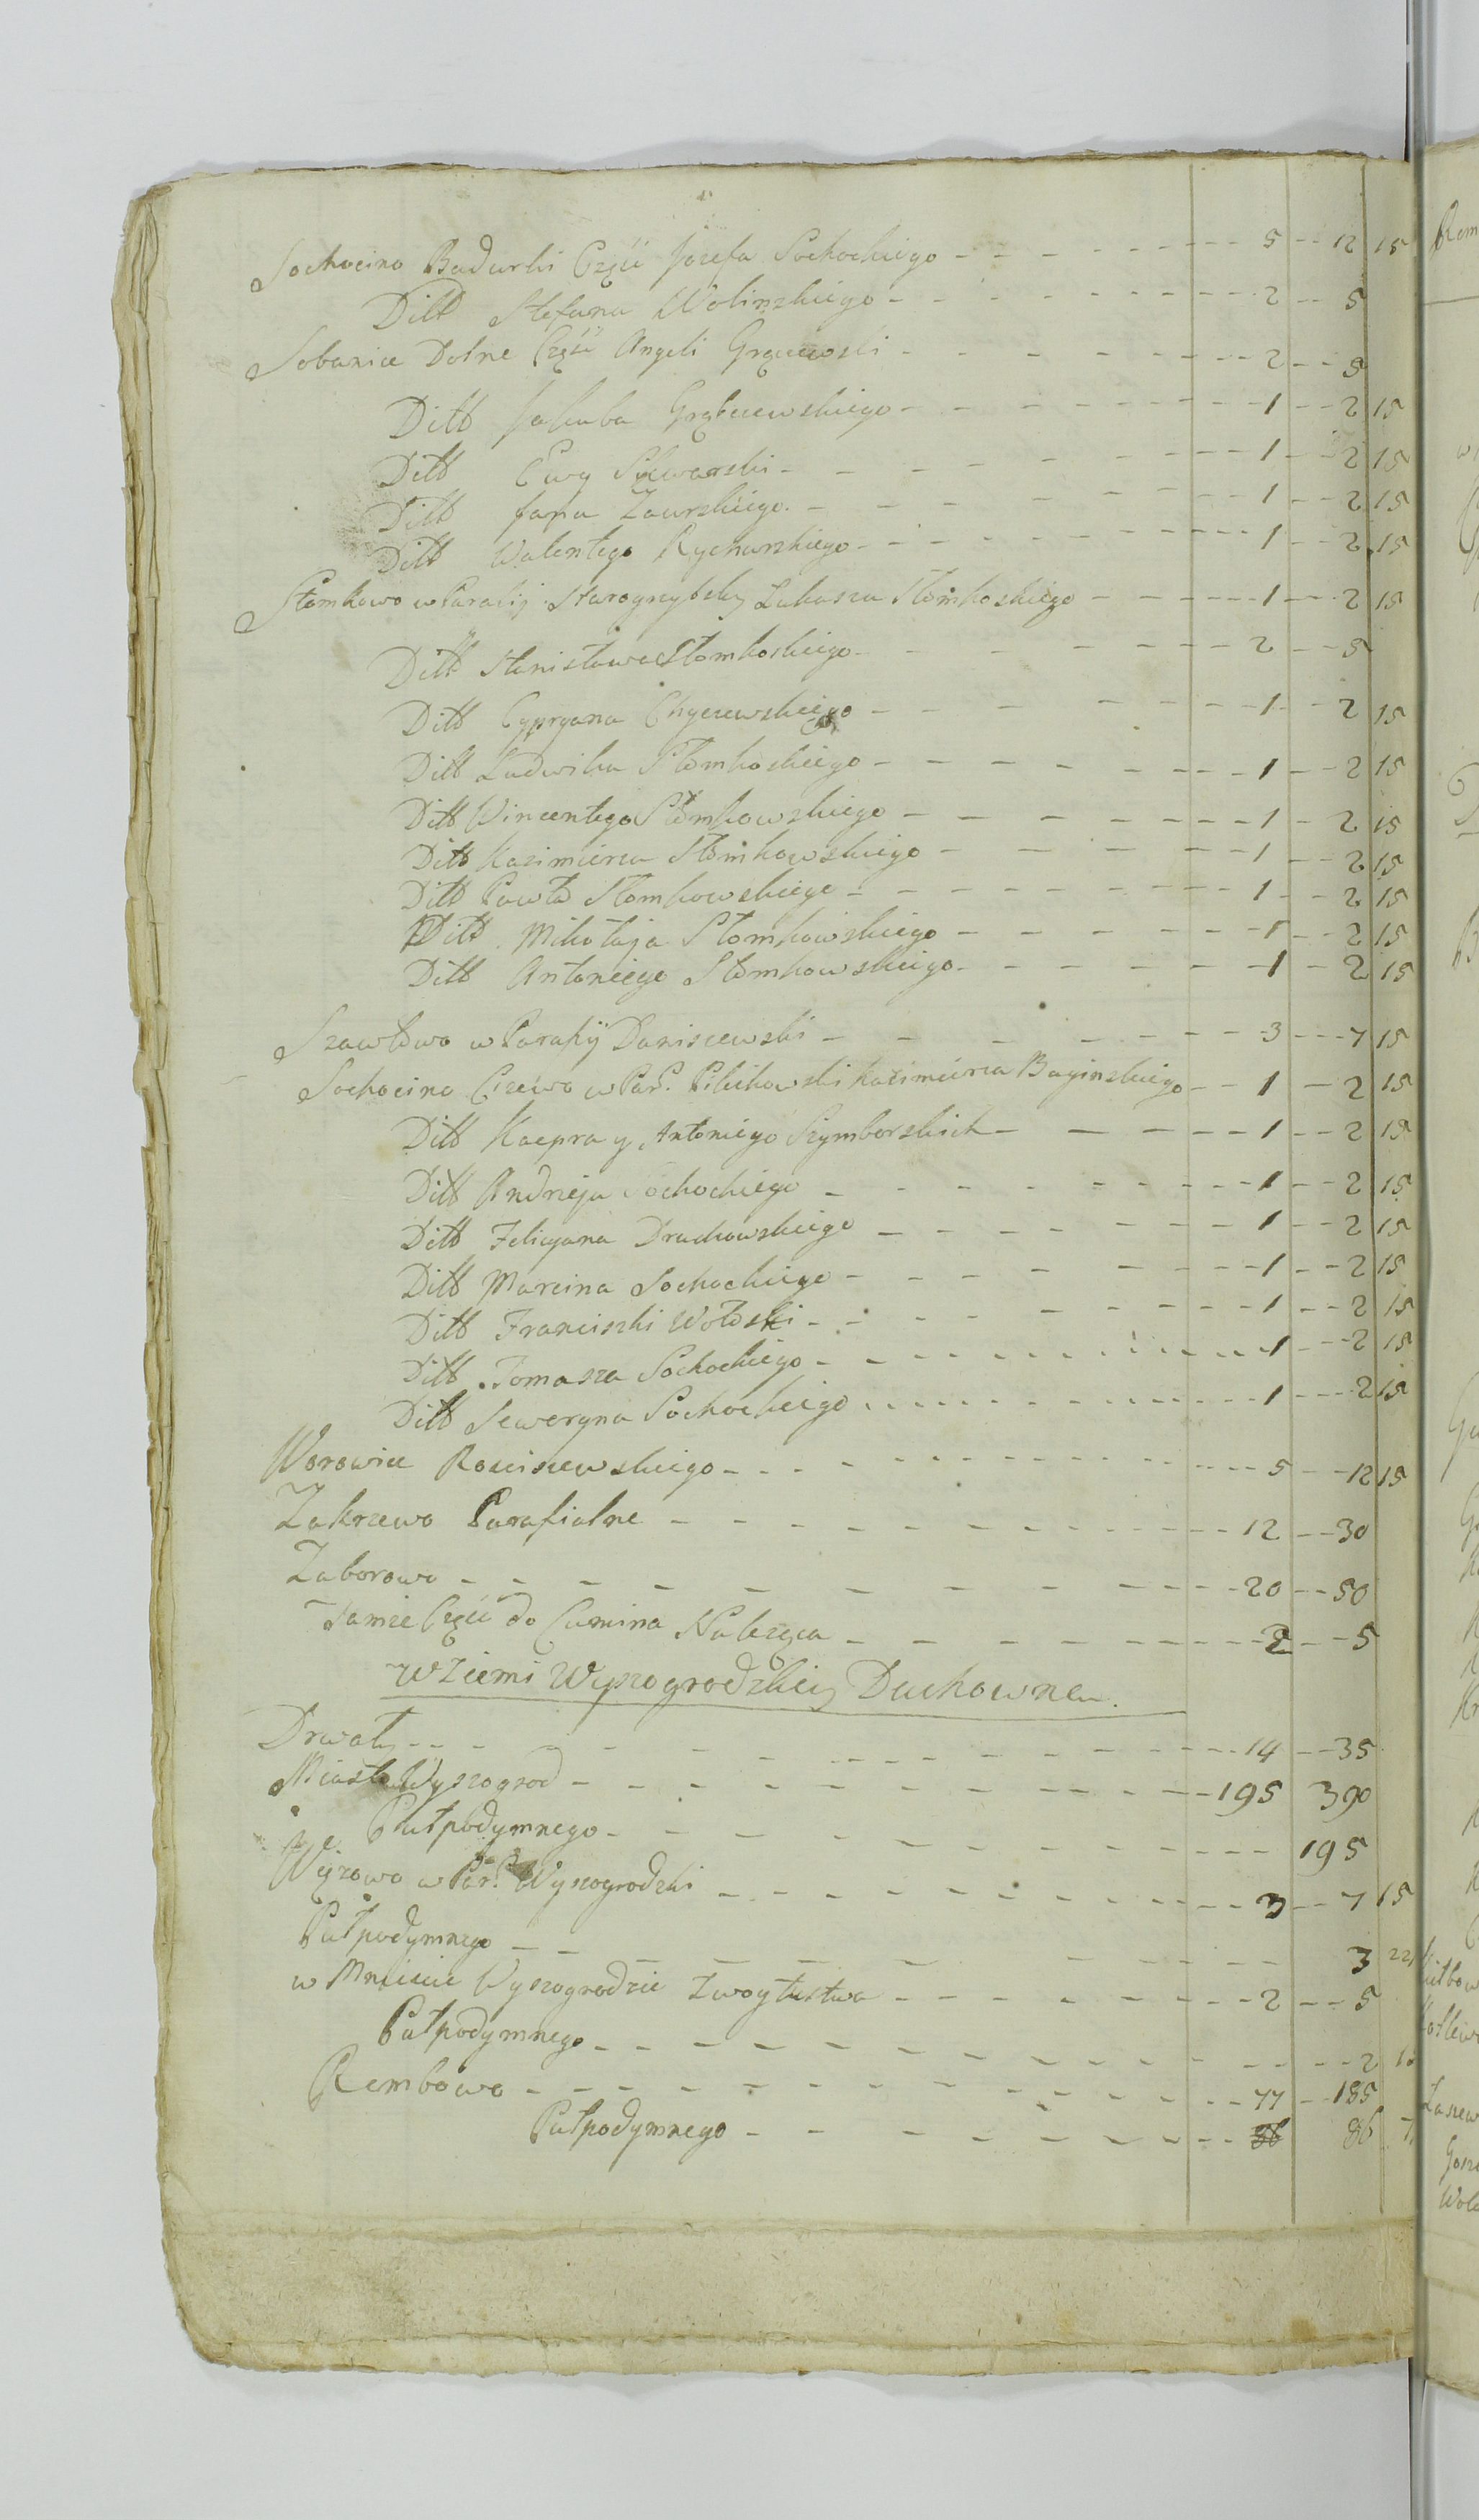 Sochocino Badurki Część Jozefa Sochockiego - - - 5 - - 12 15
Ditto Stefana Wolinskiego - - - 2 - - 5
Sobanice Dolne Część Angeli - - - 2 - - 5
Ditto Jakuba Grąbczewskiego - - - 1 - - 2 15
Ditto Ewy - - - 1 - - 2 15
Ditto Jana Zawrskiego - - - 1 - - 2 15
Ditto Walentego Rycharskiego - - - 1 - - 2 15
Słomkowo w Parafij Łukasza Słomkoskiego - - - 1 - - 2 15
Ditto Stanisława Słomkoskiego - - - 2 - - 5
Ditto Cypryana Chyczewskiego - - - 1 - - 2 15
Ditto Ludwika Słomkoskiego - - - 1 - - 2 15
Ditto Wincentego Słomkowskiego - - - 1 - 2 15
Ditto Kazimierza Słomkowskiego - - - 1 - - 2 15
Ditto Pawła Słomkowskiego - - - 1 - - 2 15
Ditto Mikołaja Słomkowskiego - - - 1 - - 2 15
Ditto Antoniego Słomkowskiego - - - 1 - 2 15
Szawłowo w Parafij Daniszewski - - - 3 - - - 7 15
Sochocino Czewo w Par. Pilichowski Kazimierza Baginskiego - - 1 - 2 15
Ditto Kacpra y Antoniego Szymborskich - - - 1 - - 2 15
Ditto Andrzeja Sochockiego - - - 1 - - 2 15
Ditto Felicyana Druchowskiego - - - 1 - - 2 15
Ditto Marcina Sochockiego - - - 1 - - 2 15
Ditto Franciszki Wołoski - - - 1 - - 2 15
Ditto Tomasza Sochockiego - - - 1 - - 2 15
Ditto Seweryna Sochockiego - - - 1 - - - 2 15
Worowice Rosciszewskiego - - - 5 - - 12 15
Zakrzewo Parafialne - - - 12 - - 30
Zaborowo - - - 20 - - 50
Tamże Część do Cumina Należąca - - - 2 - - 5
w Ziemi Wyszogrodzkiey Duchowne
Drwały - - - 14 - - 35
Miasto Wyszogrod - - - 195 390
Pułpodymnego - - - 195
w Par. Wyszogrodzki - - - 3 - - 7 15
Pułpodymnego - - - 3 22
w Mieście Wyszogrodzie z woytustwa - - - 2 - - 5
Pułpodymnego - - - 2
Rembowo - - - 77 - - 185
Pułpodymnego - - - 86 86